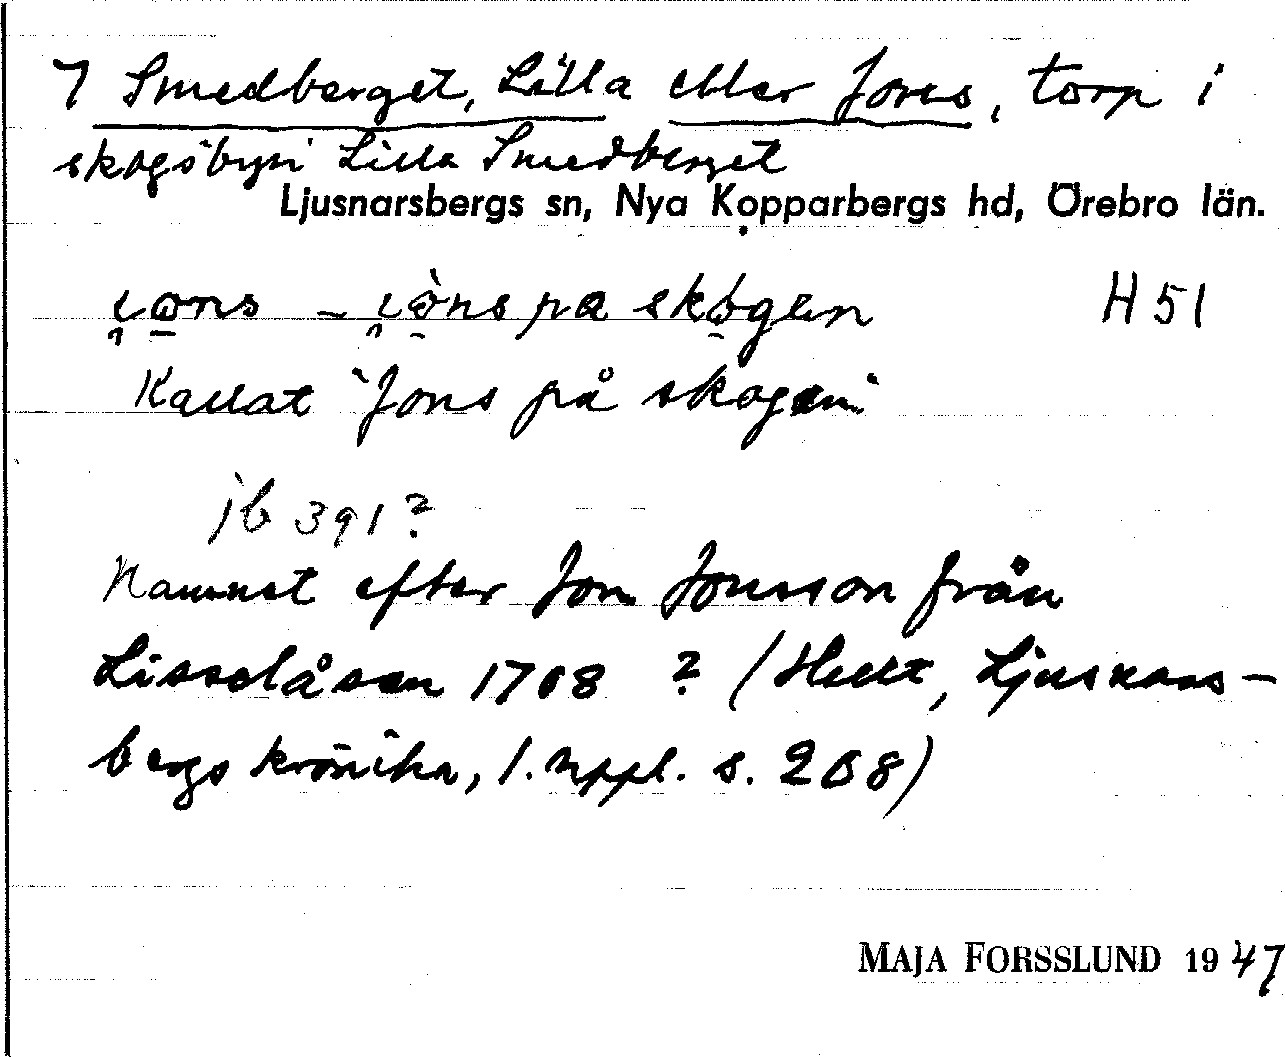 7 Smedberget, Lilla eller Jons, torp i
skogsbyn Lilla Smedberget
Ljusnarsbergs sn, Nya Kopparbergs hd, Örebro län.
ı̯ɷns – ı̯ɷ̀ns pa skógen H 51
Kallat "Jons på skogen"
jb 391?
Namnet efter Jon Jonsson från
Lisselåsen 1708 ? (Hult, Ljusnars-
bergs krönika, 1. uppl. s. 268)
MAJA FORSSLUND 1947